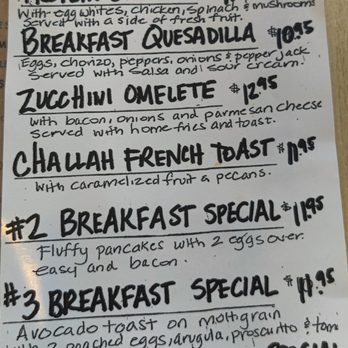 with egg whites, chicken, spinach & mushrooms
Served with a side of fresh fruit.
BREAKFAST QUESADILLA $10.95
Eggs, chorizo, peppers, onions & pepper jack
Served with salsa and sour cream.
ZUCCHINI OMELETE $12.95
with bacon, onions and parmesan cheese
served with home fries and toast.
CHALLAH FRENCH TOAST $11.95
with caramelized fruit & pecans.
#2 BREAKFAST SPECIAL $11.95
Fluffy pancakes with 2 eggs over
easy and bacon.
#3 BREAKFAST SPECIAL $11.95
Avocado toast on multigrain
with 2 poached eggs, arugula, prosciutto & tom
SPECIAL